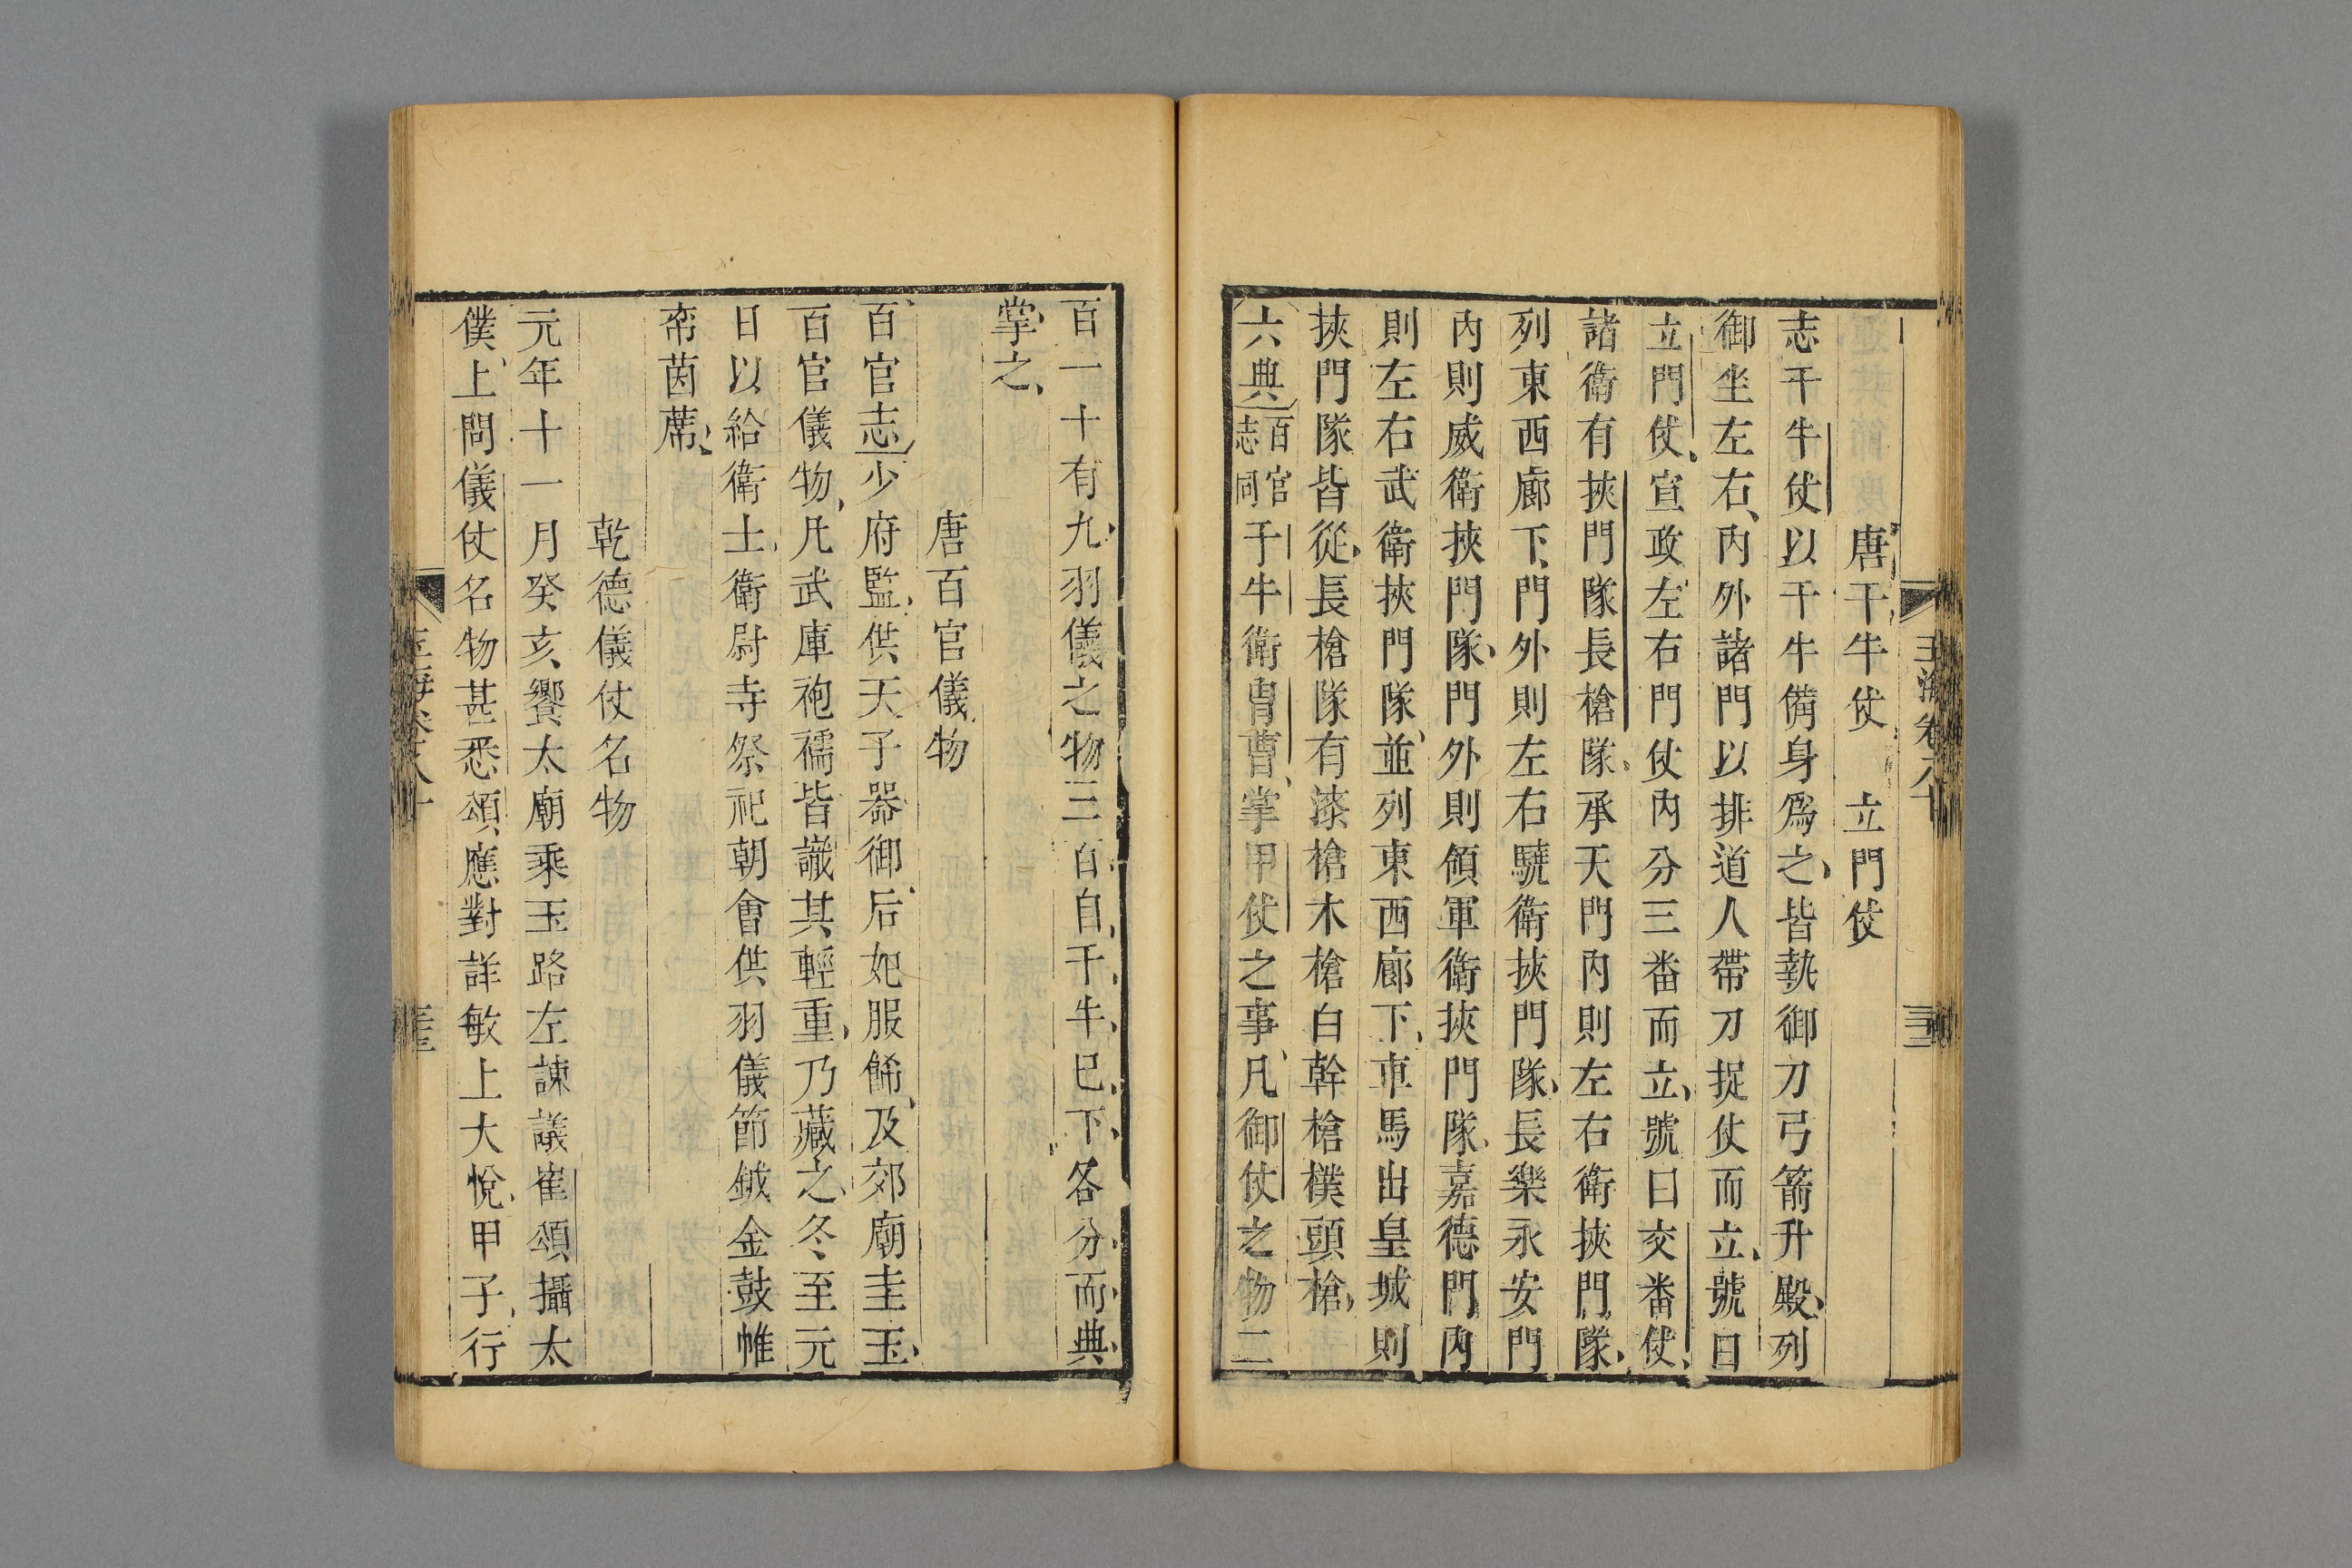 唐千牛仗　立門仗
志千牛仗以千牛備身爲之皆執御刀弓箭升殿列
御坐左右內外諸門以排道人帶刀捉仗而立號曰
立門仗宣政左右門仗內分三番而立號曰交番仗
諸衛有挾門隊長槍隊承天門內則左右衛挾門隊
列東西廊下門外則左右驍衛挾門隊長樂永安門
內則威衛挾門隊門外則領軍衛挾門隊嘉德門內
則左右武衛挾門隊並列東西廊下車馬出皇城則
挾門隊皆從長槍隊有漆槍木槍白幹槍樸頭槍
六典百官志同千牛衛冑曹掌甲仗之事凡御仗之物二
百一十有九羽儀之物三百自千牛已下各分而典
掌之
唐百官儀物
百官志少府監供天子器御后妃服飾及郊廟圭玉
百官儀物凡武庫袍襦皆識其輕重乃藏之冬至元
日以給衛士衛尉寺祭祀朝會供羽儀節鉞金鼓帷
帟茵蓆
乾德儀仗名物
元年十一月癸亥饗太廟乘玉路左諫議崔頌攝太
僕上問儀仗名物甚悉頌應對詳敏上大悅甲子行